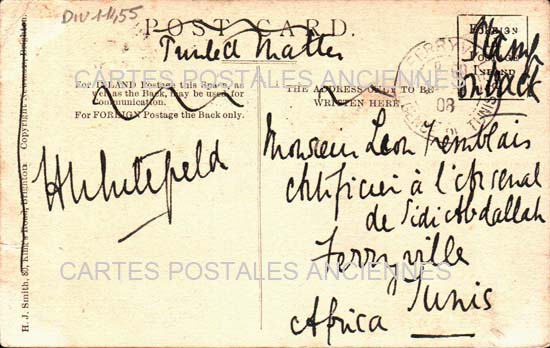 DIV 1-14,55
POST CARD.
Printed Matter
FOREIGN
INLAND
Stamp
on back
For INLAND Postage this Space, as
well as the Back, may be used for
Communication.
For FOREIGN Postage the Back only.
THE ADDRESS ONLY TO BE
WRITTEN HERE.
FERRYVILLE
08
TUNISIE
CARTES POSTALES ANCIENNES
H Whitefield
Monsieur Leon Tremblais
artificier à l'Arsenal
de Sidi Abdallah
Ferryville
Tunis
Africa
CARTES POSTALES ANCIENNES
H. J. Smith, 87, King's Road, Brighton. Copyright.